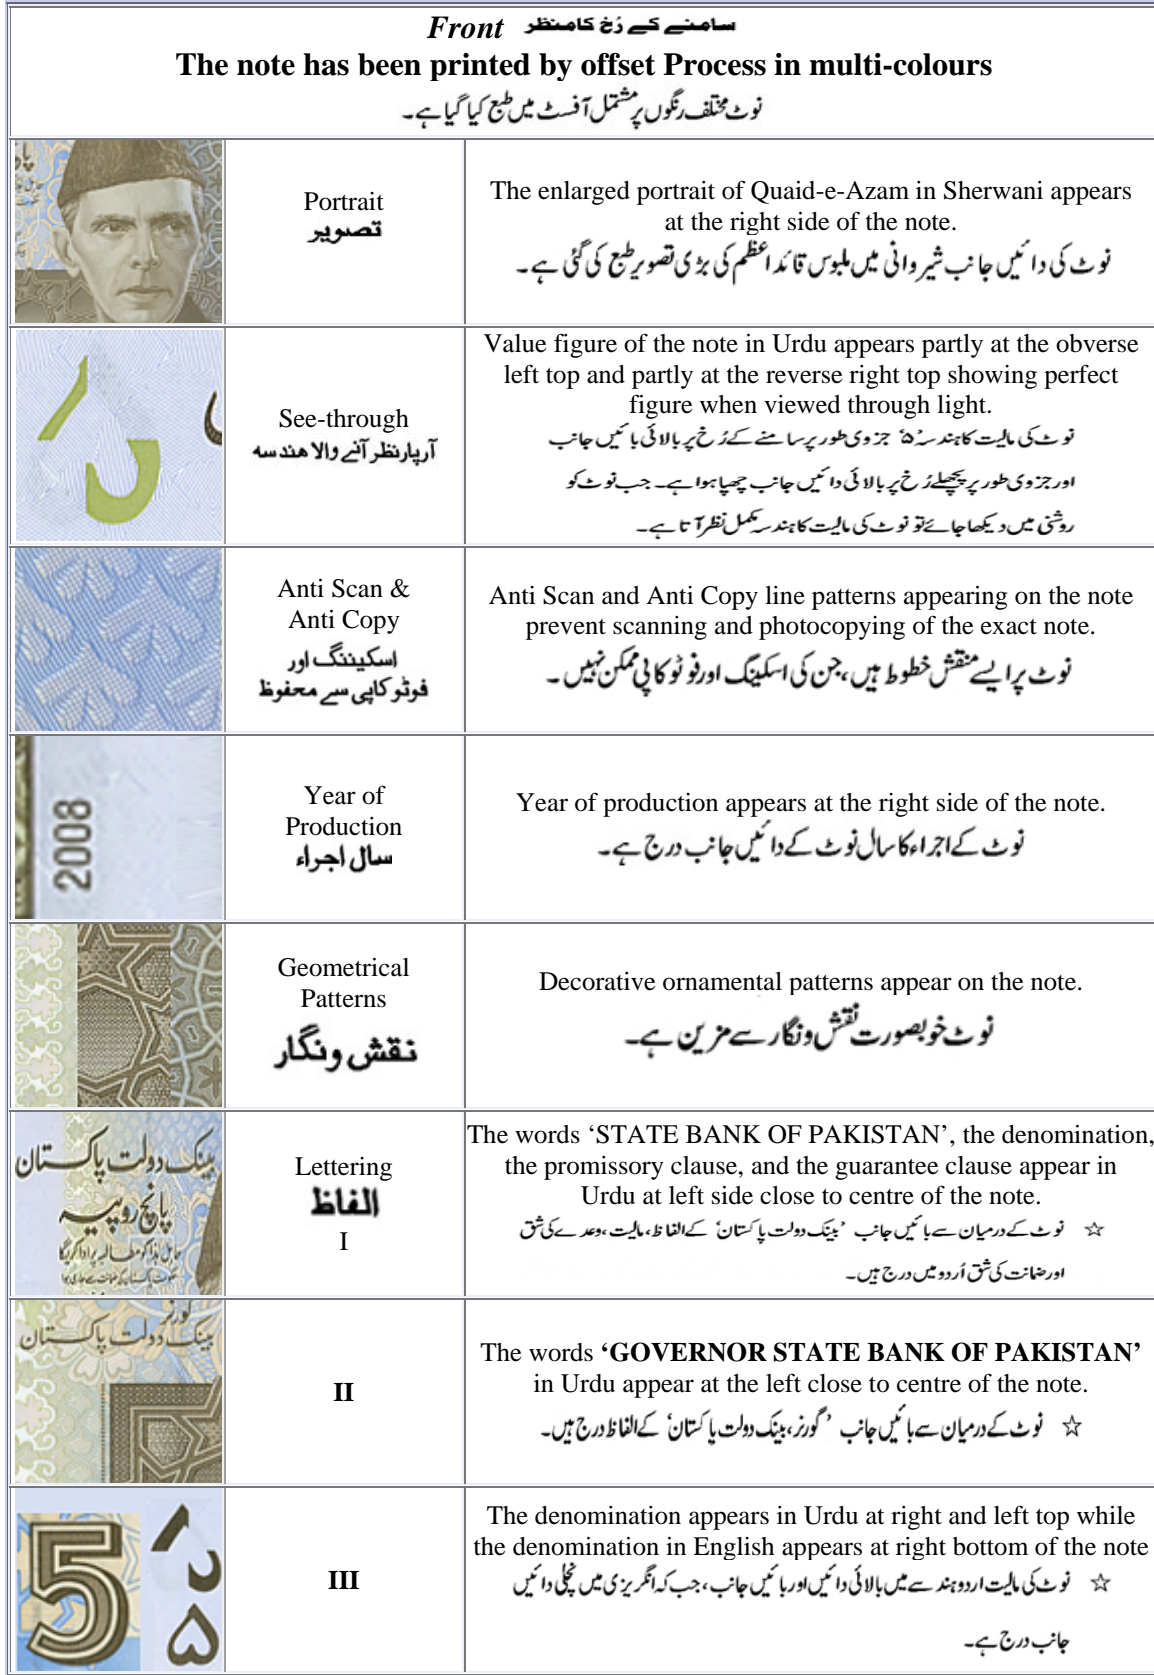 Front سامنے کے رُخ کا منظر
The note has been printed by offset Process in multi-colours
نوٹ مختلف رنگوں پر مشتمل آفسٹ میں طبع کیا گیا ہے۔
Portrait
تصویر
The enlarged portrait of Quaid-e-Azam in Sherwani appears
at the right side of the note.
نوٹ کی دائیں جانب شیروانی میں ملبوس قائد اعظم کی بڑی تصویر طبع کی گئی ہے۔
See-through
آرپار نظر آنے والا ہندسہ
Value figure of the note in Urdu appears partly at the obverse
left top and partly at the reverse right top showing perfect
figure when viewed through light.
نوٹ کی مالیت کا ہندسہ ’۵‘ جزوی طور پر سامنے کے رُخ پر بالائی بائیں جانب
اور جزوی طور پر پچھلے رُخ پر بالائی دائیں جانب چھپا ہوا ہے۔ جب نوٹ کو
روشنی میں دیکھا جائے تو نوٹ کی مالیت کا ہندسہ مکمل نظر آتا ہے۔
Anti Scan &
Anti Copy
اسکیننگ اور
فوٹو کاپی سے محفوظ
Anti Scan and Anti Copy line patterns appearing on the note
prevent scanning and photocopying of the exact note.
نوٹ پر ایسے منقش خطوط ہیں، جن کی اسکینگ اور فوٹو کاپی ممکن نہیں۔
2008
Year of
Production
سال اجراء
Year of production appears at the right side of the note.
نوٹ کے اجراء کا سال نوٹ کے دائیں جانب درج ہے۔
Geometrical
Patterns
نقش ونگار
Decorative ornamental patterns appear on the note.
نوٹ خوبصورت نقش ونگار سے مزین ہے۔
بینک دولت پاکستان
پانچ روپیہ
حامل ہٰذا کو مطالبہ پر ادا کریگا
حکومت پاکستان کی ضمانت سے جاری ہوا
Lettering
الفاظ
I
The words ‘STATE BANK OF PAKISTAN’, the denomination,
the promissory clause, and the guarantee clause appear in
Urdu at left side close to centre of the note.
☆ نوٹ کے درمیان سے بائیں جانب ’بینک دولت پاکستان‘ کے الفاظ، مالیت، وعدے کی شق
اور ضمانت کی شق اُردو میں درج ہیں۔
گورنر
بینک دولت پاکستان
II
The words ‘GOVERNOR STATE BANK OF PAKISTAN’
in Urdu appear at the left close to centre of the note.
☆ نوٹ کے درمیان سے بائیں جانب ’گورنر، بینک دولت پاکستان‘ کے الفاظ درج ہیں۔
5
۵
III
The denomination appears in Urdu at right and left top while
the denomination in English appears at right bottom of the note
☆ نوٹ کی مالیت اردو ہندسے میں بالائی دائیں اور بائیں جانب، جب کہ انگریزی میں نچلی دائیں
جانب درج ہے۔